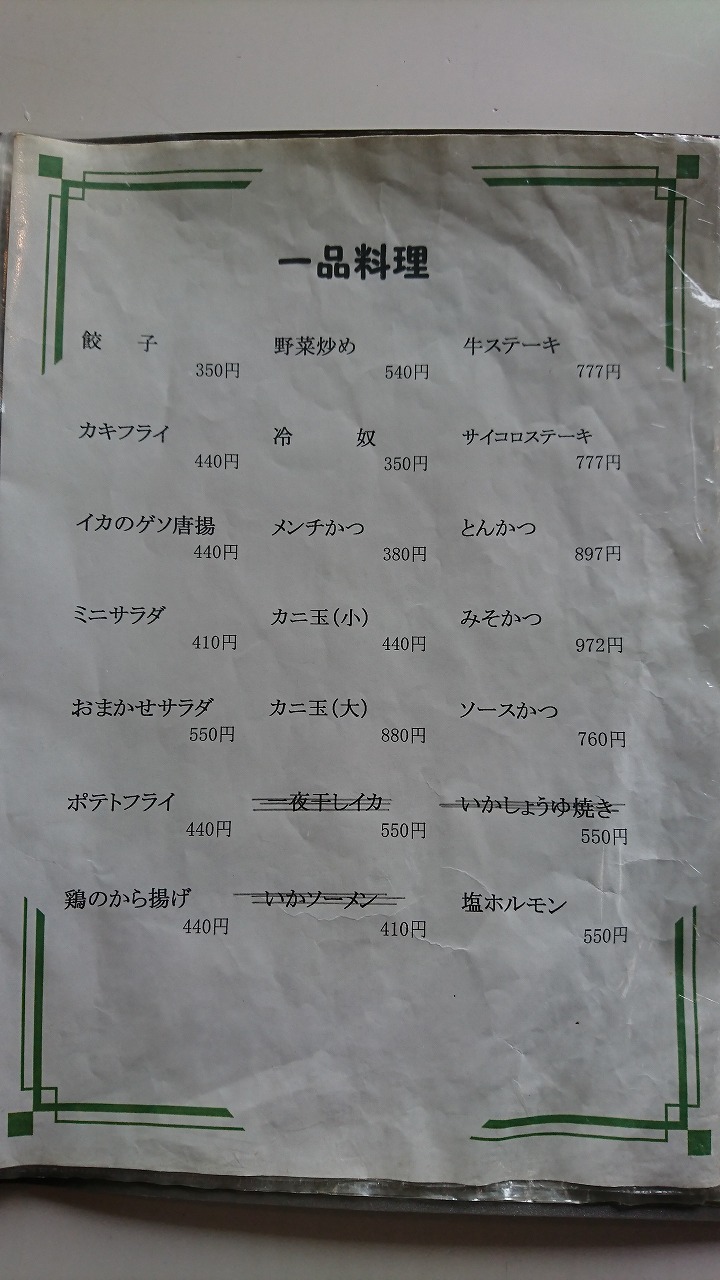 一品料理
餃子 野菜炒め 牛ステーキ
350円 540円 777円
カキフライ 冷奴 サイコロステーキ
440円 350円 777円
イカのゲソ唐揚 メンチかつ とんかつ
440円 380円 897円
ミニサラダ カニ玉(小) みそかつ
410円 440円 972円
おまかせサラダ カニ玉(大) ソースかつ
550円 880円 760円
ポテトフライ 一夜干しイカ いかしょうゆ焼き
440円 550円 550円
鶏のから揚げ いかソーメン 塩ホルモン
440円 410円 550円